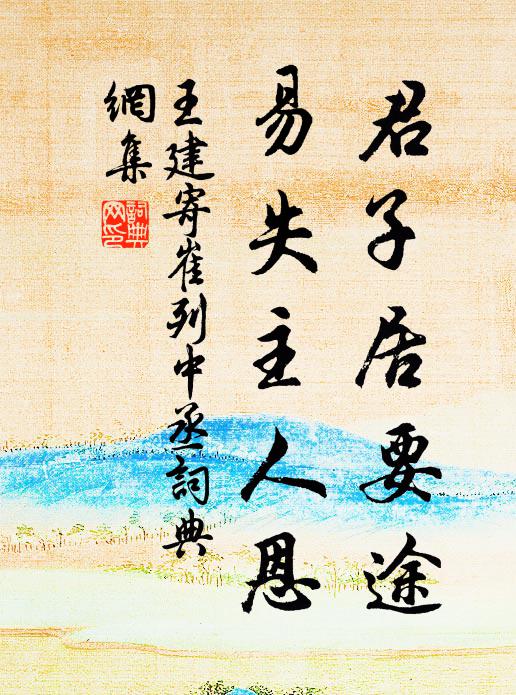 君子居要途
易失主人恩
王建寄崔列中丞詞典
網集
詞典
网印